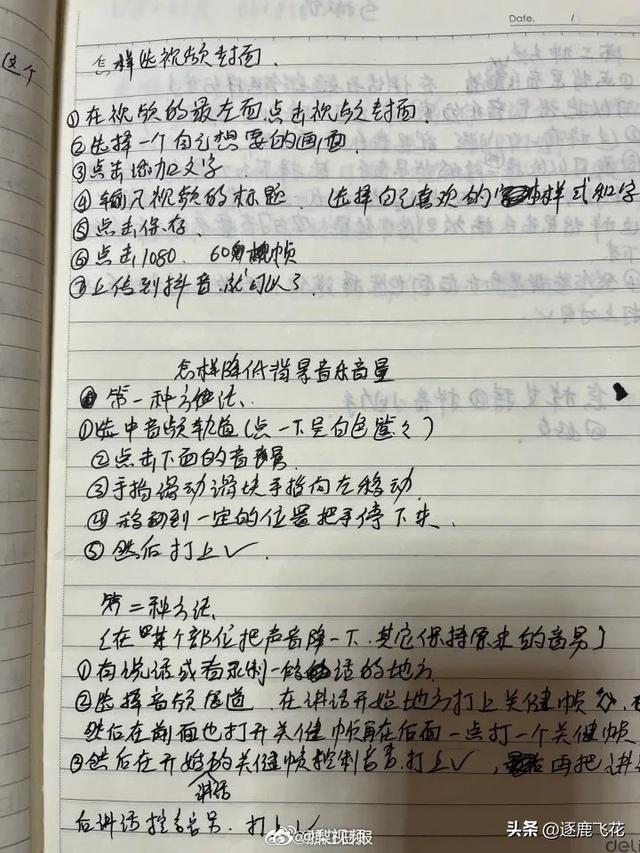 Date. /
这个
怎样选视频封面.
①在视频的最左面点击视频封面.
②选择一个自己想要的画面
③点击添加文字
④输入视频的标题. 选择自己喜欢的样式和字
⑤点击保存.
⑥点击1080. 60帧
⑦上传到抖音.就可以了.
怎样降低背景音乐音量
第一种方法、
①选中音频轨道(点一下呈白色)
②点击下面的音量
③手指滑动滑块手指向左移动.
④移动到一定的位置把手停下来、
⑤然后打上✓.
第二种方法.
(在某个部位把声音降一下.其它保持原来的音量)
①有说话或者录制一些话的地方.
②选择音频轨道. 在讲话开始地方打上关健帧
然后在前面也打开关健帧再在后面一点打一个关健帧
③然后在开始的关健帧控制音量.打上✓, 再把讲
讲话
后讲话控音量. 打上✓
@梨视频
头条 @逐鹿飞花
deli